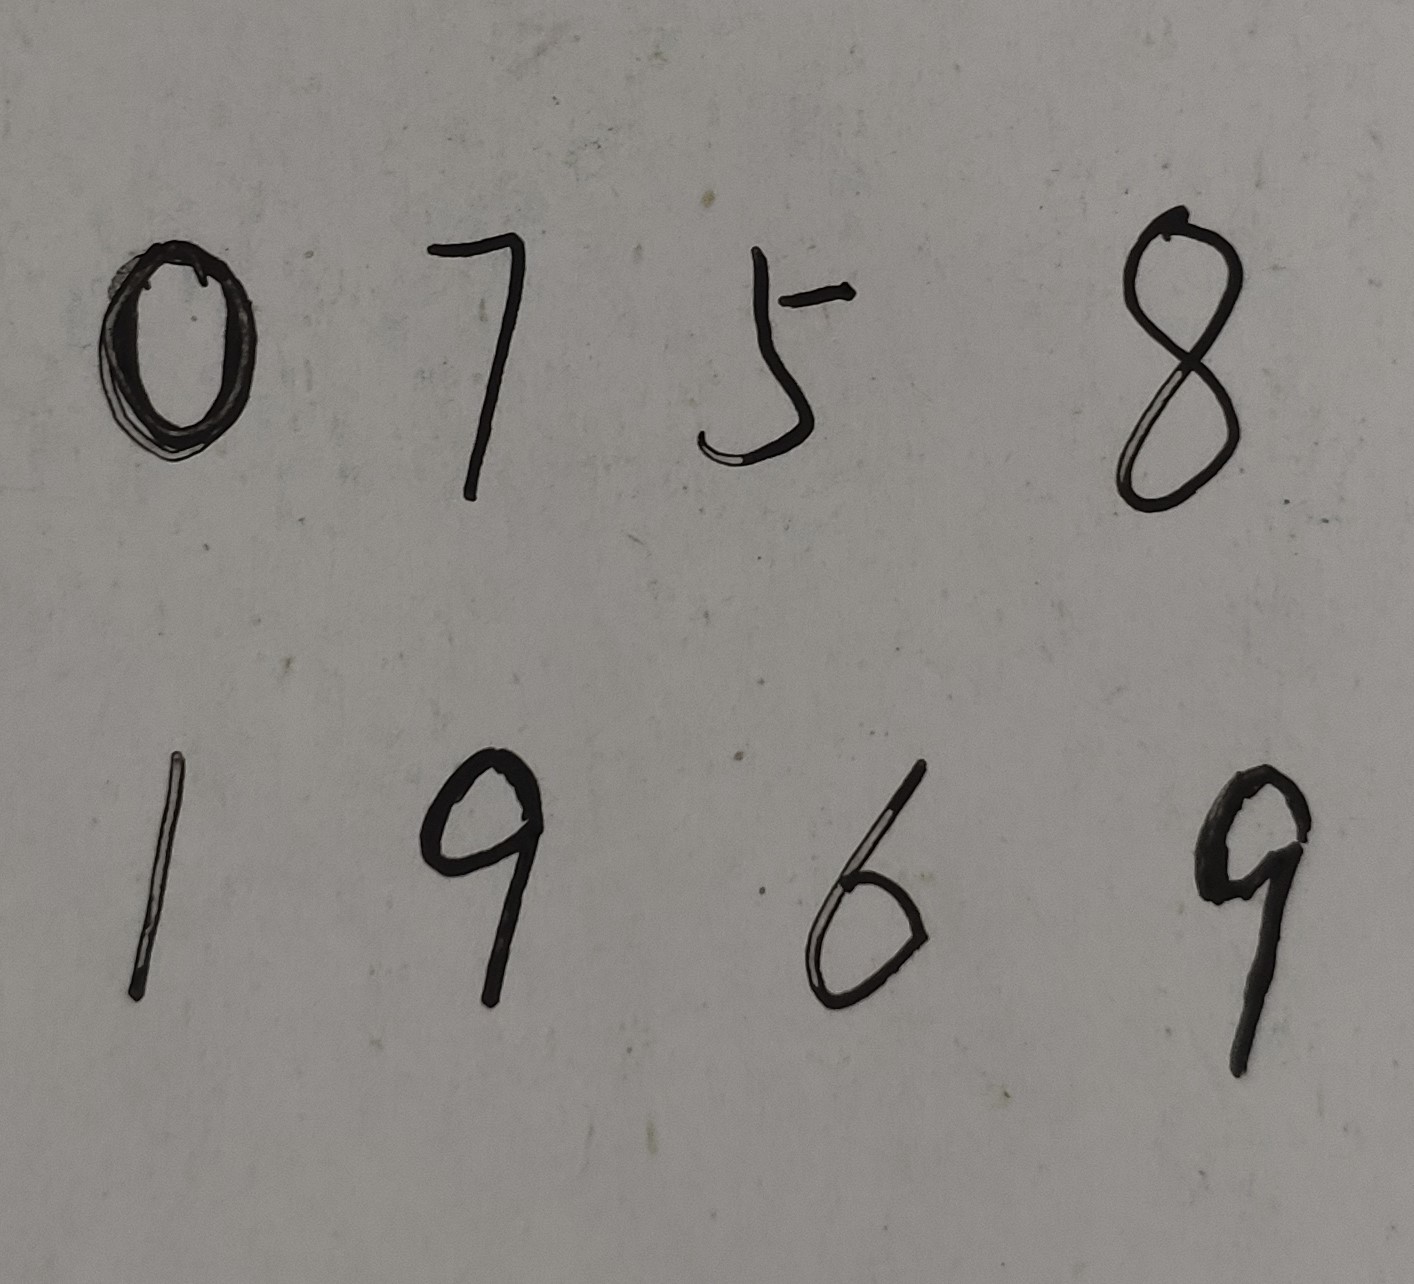 0 7 5 8
1 9 6 9